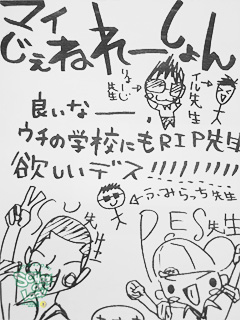 マイ
じぇねれーしょん
りょーじ
先生
イル先生
良いなー、
ウチの学校にもRIP先生
欲しいデス!!!!!!!!!
←ふみらっち先生
SU先生
PES先生